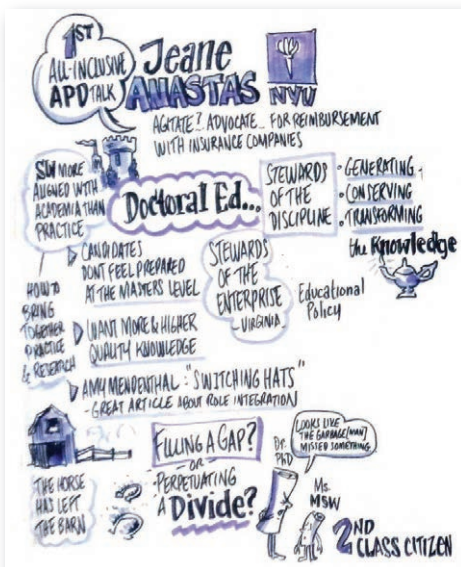 1ST
ALL-INCLUSIVE
APD TALK
Jeane
ANASTAS
NYU
AGITATE? ADVOCATE... FOR REIMBURSEMENT
WITH INSURANCE COMPANIES
SW MORE
ALIGNED WITH
ACADEMIA THAN
PRACTICE
Doctoral Ed...
STEWARDS
OF THE
DISCIPLINE
• GENERATING
• CONSERVING
• TRANSFORMING
the Knowledge
CANDIDATES
DON'T FEEL PREPARED
AT THE MASTERS LEVEL
STEWARDS
OF THE
ENTERPRISE
- VIRGINIA -
Educational
Policy
HOW TO
BRING
TOGETHER
PRACTICE
& RESEARCH
WANT MORE & HIGHER
QUALITY KNOWLEDGE
AMY MENDENTHAL: "SWITCHING HATS"
- GREAT ARTICLE ABOUT ROLE INTEGRATION
FILLING A GAP?
- OR -
PERPETUATING
A Divide?
THE HORSE
HAS LEFT
THE BARN
LOOKS LIKE
THE GARBAGE (MAN)
MISSED SOMETHING
Dr.
PhD
Ms.
MSW
2ND
CLASS CITIZEN